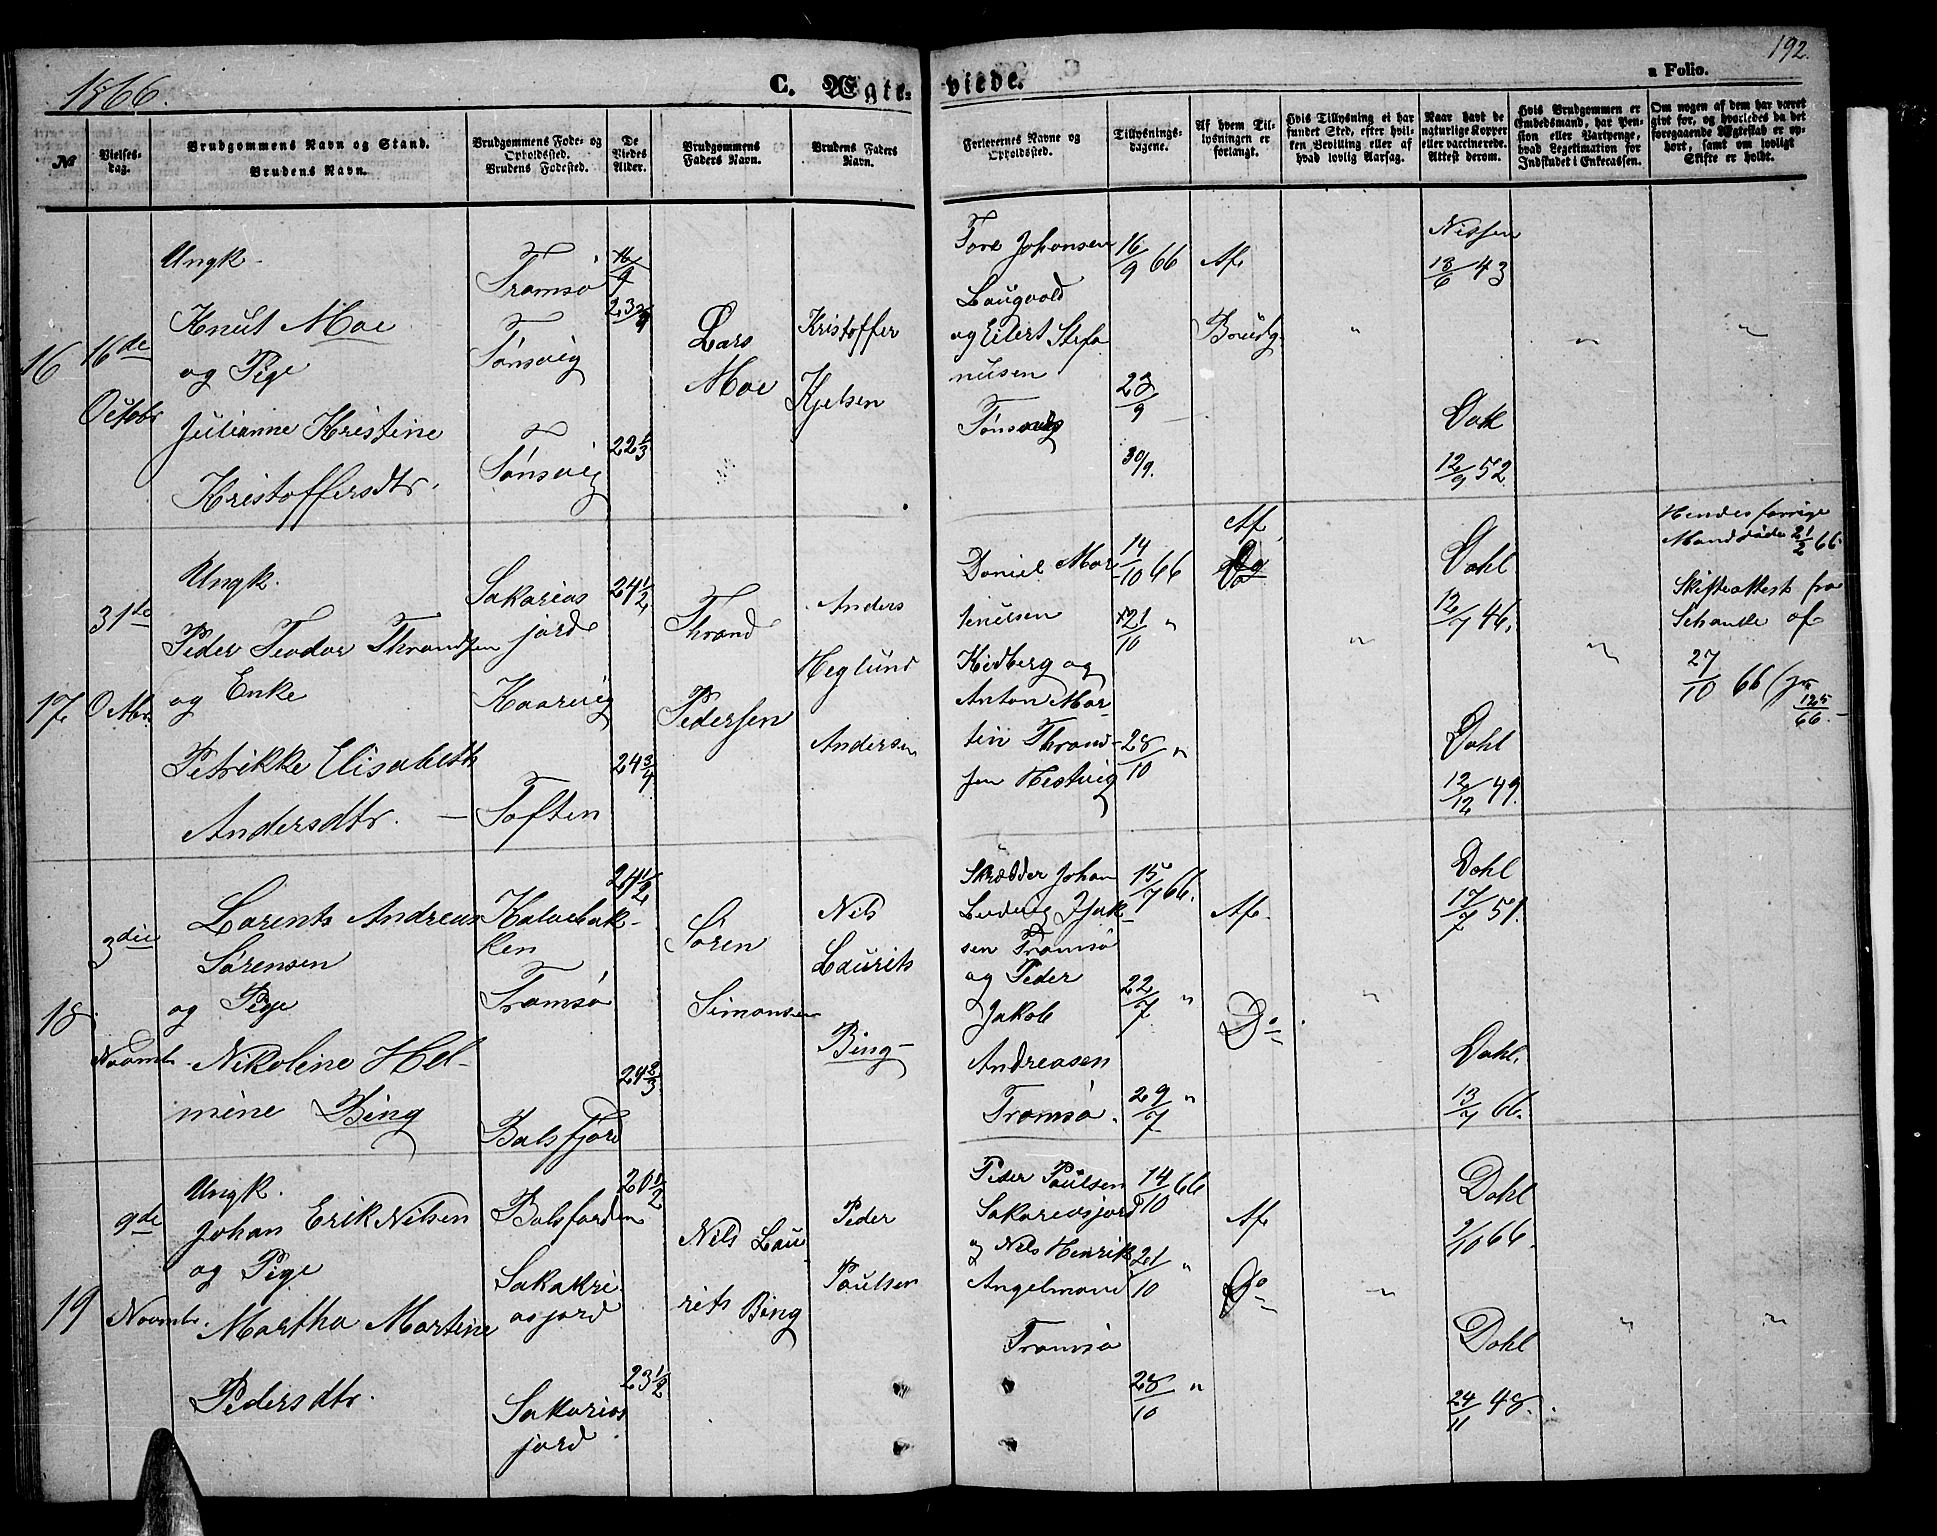 1866.
192.
C. Ægte-
viede.
a Folio.
№
Vielses-
dag.
Brudgommens Navn og Stand.
Brudens Navn.
Brudgommens Føde- og
Opholdssted.
Brudens Fødested.
De
Viedes
Alder.
Brudgommens
Faders Navn.
Brudens Faders
Navn.
Forloverenes Navne og
Opholdssted.
Tillysnings-
dagene.
Af hvem Til-
lysningen er
forlangt.
Hvis Tillysning ei har
fundet Sted, efter hvil-
ken Bevilling eller af
hvad lovlig Aarsag.
Naar havt de
naturlige Kopper
eller vaccinerede.
Attest derom.
Hvis Brudgommen er
Embedsmand, har Pen-
sion eller Vartpenge,
hvad Legitimation for
Indskudet i Enkecassen.
Om nogen af dem har været
gift før, og hvorledes da det
foregaaende Ægteskab er op-
hørt, samt om lovligt
Skifte er holdt.
16
16de
Octobr
Ungk.
Knut Moe
og Pige
Julianne Kristine
Kristoffersdtr.
Tromsø
Tønsvig
Tønsvig
22 1/3
Lars
Moe
Kristoffer
Kjelsen
Tore Johansen
Laugvold
og Eilert Stefa
nusen
Tønsvig
16/9 66
23/9
30/9.
Af
Brudg.
"
Nissen
13/6 43
Dok
12/9 52.
"
"
17
31te
Octbr.
Ungk.
Peder Teodor Thrandsen
og Enke
Petrikke Elisabeth
Andersdtr. —
Sakarias
jord
Kaarvig
Toften
24 1/2
24 3/4
Thrand
Pedersen
Anders
Heglund
Andersen
Daniel Mor
tensen
Kidberg og
Anton Mar-
tin Thrand-
sen Hestvig
14/10 66
21/10 "
28/10 "
Af
Do
"
Dahl
12/7 46.
Dahl
12/12 49.
"
Hendes forrige
Mand døde 21/2 66.
Skifteattest fra
Schanke af
27/10 66 (jr.
125/66.
18
3die
Novmbr.
Lorents Andreas
Sørensen
og Pige
Nikoline Hel-
mine Bing
Kalvebak-
ken
Tromsø
Balsfjord
24 1/2
24 2/3
Søren
Simonsen
Nils
Laurits
Bing
Skrædder Johan
Ludvig Isak-
sen Tromsø
og Peder
Jakob
Andreasen
Tromsø.
15/7 66.
22/7 "
29/7 "
Af.
Do
"
Dahl
17/7 51.
Dahl.
13/7 66.
19
9de
Novmbr.
Ungk.
Johan Erik Nilsen
og Pige
Martha Martine
Pedersdtr.
Balsfjorden
Sakari
asjord
Sakarias
jord
20 1/2
23 1/2
Nils Lau
rits Bing
Peder
Paulsen
Peder Paulsen
Sakariasjord
og Nils Henrik
Angelmand
Tromsø
14/10 66
21/10 "
28/10 "
Af
Do
"
Dahl
9/10 66.
Dahl
24/11 48.
"
"